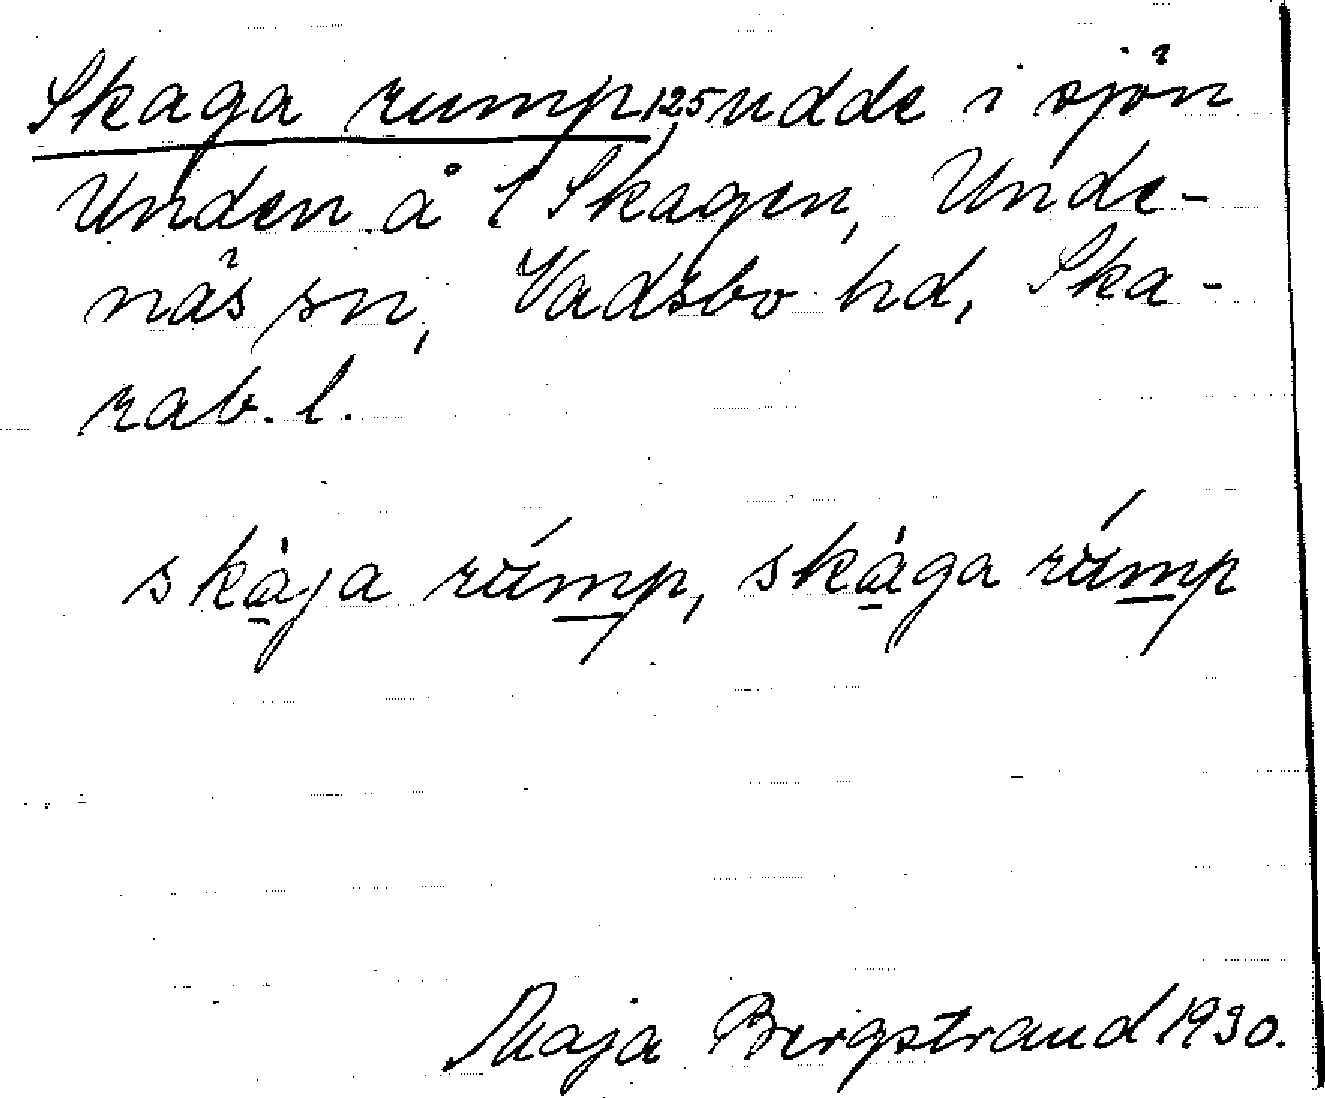 Skaga rump, 125 udde i sjön
Unden å 1 Skagen, Unde-
näs sn, Vadsbo hd, Ska-
rab. l.
skàja rúmp, skàga rúmp
Maja Bergstrand 1930.